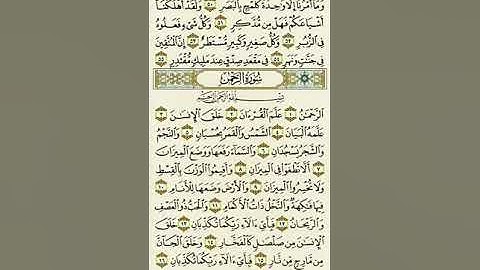 وَمَآ أَمْرُنَآ إِلَّا وَٰحِدَةٌ كَلَمْحٍۭ بِٱلْبَصَرِ ٥٠ وَلَقَدْ أَهْلَكْنَآ
أَشْيَاعَكُمْ فَهَلْ مِن مُّدَّكِرٍ ٥١ وَكُلُّ شَىْءٍ فَعَلُوهُ
فِى ٱلزُّبُرِ ٥٢ وَكُلُّ صَغِيرٍ وَكَبِيرٍ مُّسْتَطَرٌ ٥٣ إِنَّ ٱلْمُتَّقِينَ
فِى جَنَّٰتٍ وَنَهَرٍ ٥٤ فِى مَقْعَدِ صِدْقٍ عِندَ مَلِيكٍ مُّقْتَدِرٍۭ ٥٥
سُورَةُ الرَّحْمَٰن
بِسْمِ ٱللَّهِ ٱلرَّحْمَٰنِ ٱلرَّحِيمِ
ٱلرَّحْمَٰنُ ١ عَلَّمَ ٱلْقُرْءَانَ ٢ خَلَقَ ٱلْإِنسَٰنَ ٣
عَلَّمَهُ ٱلْبَيَانَ ٤ ٱلشَّمْسُ وَٱلْقَمَرُ بِحُسْبَانٍ ٥ وَٱلنَّجْمُ
وَٱلشَّجَرُ يَسْجُدَانِ ٦ وَٱلسَّمَآءَ رَفَعَهَا وَوَضَعَ ٱلْمِيزَانَ
٧ أَلَّا تَطْغَوْا۟ فِى ٱلْمِيزَانِ ٨ وَأَقِيمُوا۟ ٱلْوَزْنَ بِٱلْقِسْطِ
وَلَا تُخْسِرُوا۟ ٱلْمِيزَانَ ٩ وَٱلْأَرْضَ وَضَعَهَا لِلْأَنَامِ ١٠
فِيهَا فَٰكِهَةٌ وَٱلنَّخْلُ ذَاتُ ٱلْأَكْمَامِ ١١ وَٱلْحَبُّ ذُو ٱلْعَصْفِ
وَٱلرَّيْحَانُ ١٢ فَبِأَىِّ ءَالَآءِ رَبِّكُمَا تُكَذِّبَانِ ١٣ خَلَقَ
ٱلْإِنسَٰنَ مِن صَلْصَٰلٍ كَٱلْفَخَّارِ ١٤ وَخَلَقَ ٱلْجَآنَّ
مِن مَّارِجٍ مِّن نَّارٍ ١٥ فَبِأَىِّ ءَالَآءِ رَبِّكُمَا تُكَذِّبَانِ ١٦